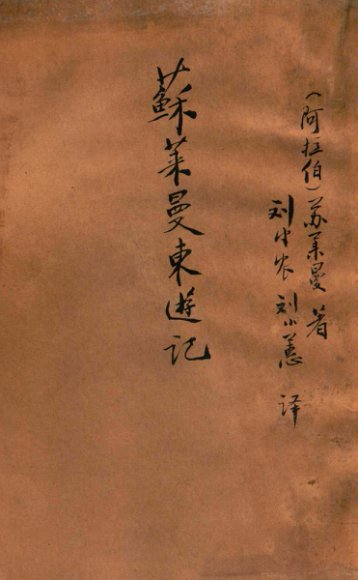 蘇莱曼東遊記
(阿拉伯)苏莱曼 著
刘半农 刘小蕙 译